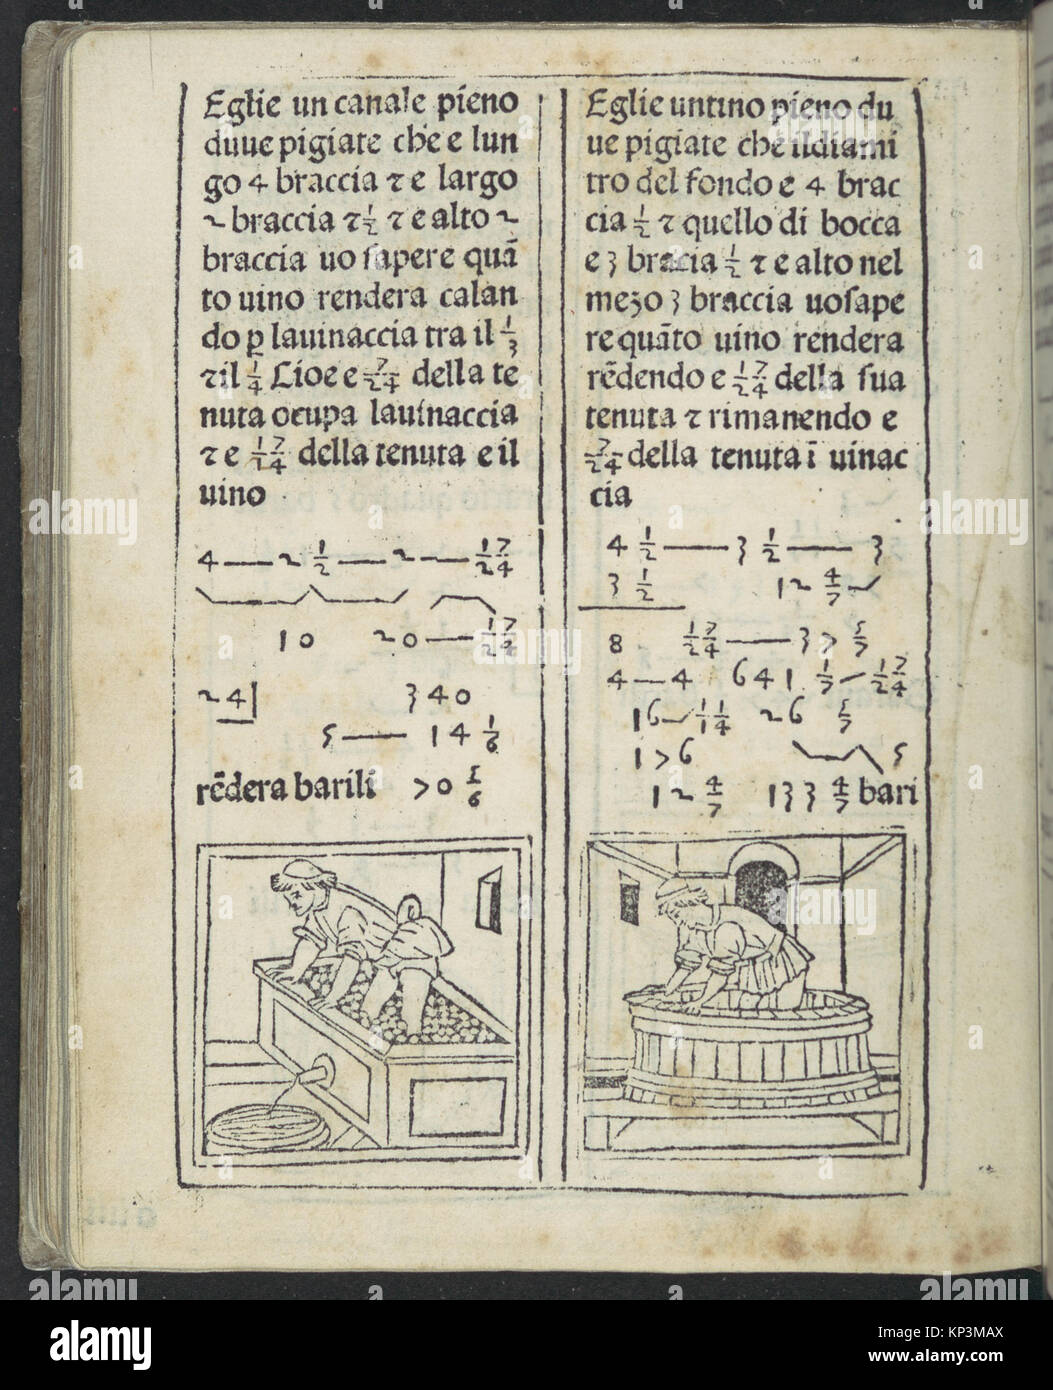 Eglie un canale pieno
duue pigiate che e lun
go 4 braccia τ e largo
2 braccia τ 1/2 τ e alto 2
braccia uo sapere quā
to uino rendera calan
do p̱ lauinaccia tra il 1/3
τ il 1/4 Cioe e 7/24 della te
nuta ocupa lauinaccia
τ e 17/24 della tenuta e il
uino
4 — 2 1/2 — 2 — 17/24
10 20 — 17/24
24 340
5 — 14 1/6
rēdera barili 70 5/6
Eglie untino pieno du
ue pigiate che ildiami
tro del fondo e 4 brac
cia 1/2 τ quello di bocca
e 3 bracia 1/2 τ e alto nel
mezo 3 braccia uosape
re quāto uino rendera
rēdendo e 17/24 della sua
tenuta τ rimanendo e
7/24 della tenuta ī uinac
cia
4 1/2 — 3 1/2 — 3
3 1/2 12 4/7
8 17/24 — 37 5/7
4 — 4 641 1/7 17/24
16 11/14 26 5/7
176 5
12 4/7 133 4/7 bari
alamy
Image ID: KP3MAX
www.alamy.com